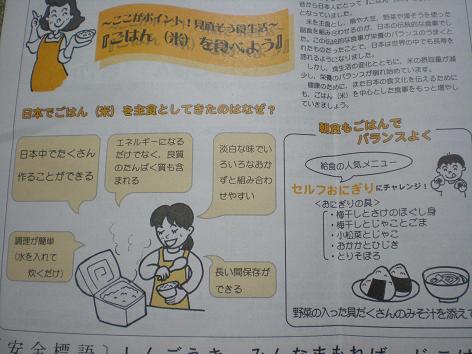 ～ここがポイント！見直そう食生活～
『ごはん（米）を食べよう』
となっていました。
米を主食とし、魚や大豆、野菜や海そうを使った
副食を組み合わせるのが、日本の伝統的な食事でし
た。この伝統的な食事が栄養のバランスのうまくと
れたものだったことで、日本は世界の中でも長寿を
誇れるようになりました。
しかし、食生活の変化とともに、米の摂取量が減
少し、栄養のバランスが崩れ始めています。
健康のために、また日本の食文化を伝えるために
も、ごはん（米）を中心とした食事をもっと増やし
ていきましょう。
日本でごはん（米）を主食としてきたのはなぜ？
日本中でたくさん
作ることができる
エネルギーになる
だけでなく、良質
のたんぱく質も含
まれる
淡白な味でい
ろいろなおか
ずと組み合わ
せやすい
調理が簡単
（水を入れて
炊くだけ）
長い間保存が
できる
朝食もごはんで
バランスよく
給食の人気メニュー
セルフおにぎりにチャレンジ！
＜おにぎりの具＞
・梅干しとさけのほぐし身
・梅干しとじゃことごま
・小松菜とじゃこ
・おかかとひじき
・とりそぼろ
野菜の入った具だくさんのみそ汁を添えて